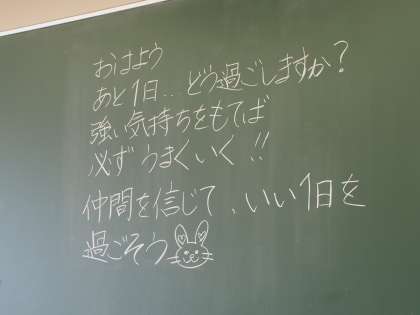 おはよう
あと1日...どう過ごしますか?
強い気持ちをもてば
必ずうまくいく!!
仲間を信じて、いい1日を
過ごそう